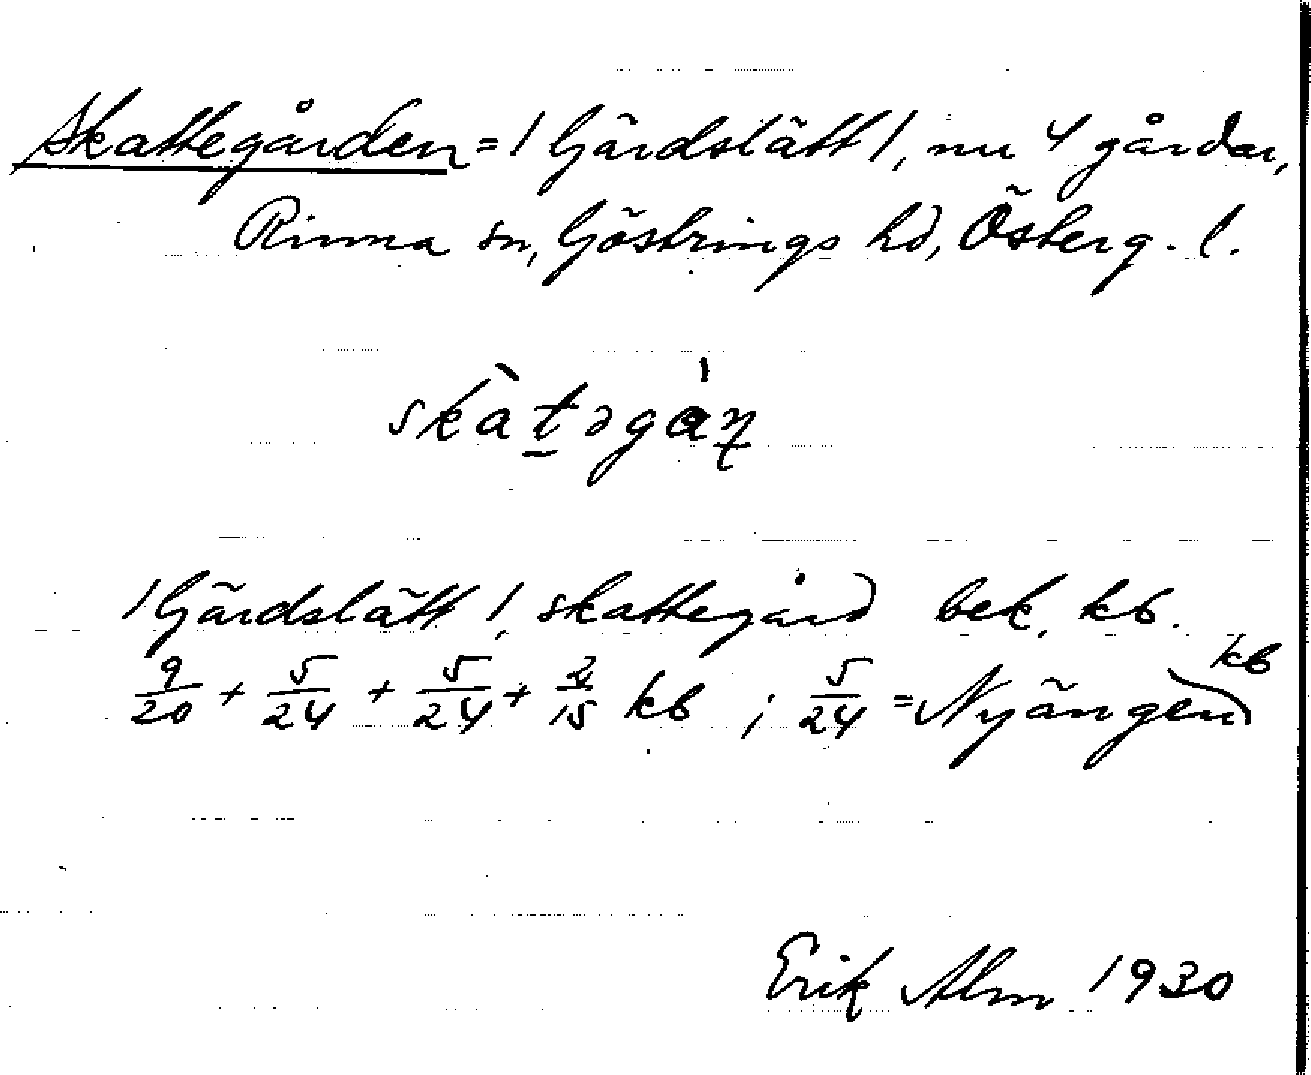 Skattegården = / Gärdslätt /, nu 4 gårdar,
Rinna sn, Göstrings hd, Österg. l.
skàt̲əgán̦
/ Gärdslätt /, skattegård bek. kb.
9/20 + 5/24 + 5/24 + 2/15 kb ; 5/24 = Nyängen kb
Erik Alm 1930